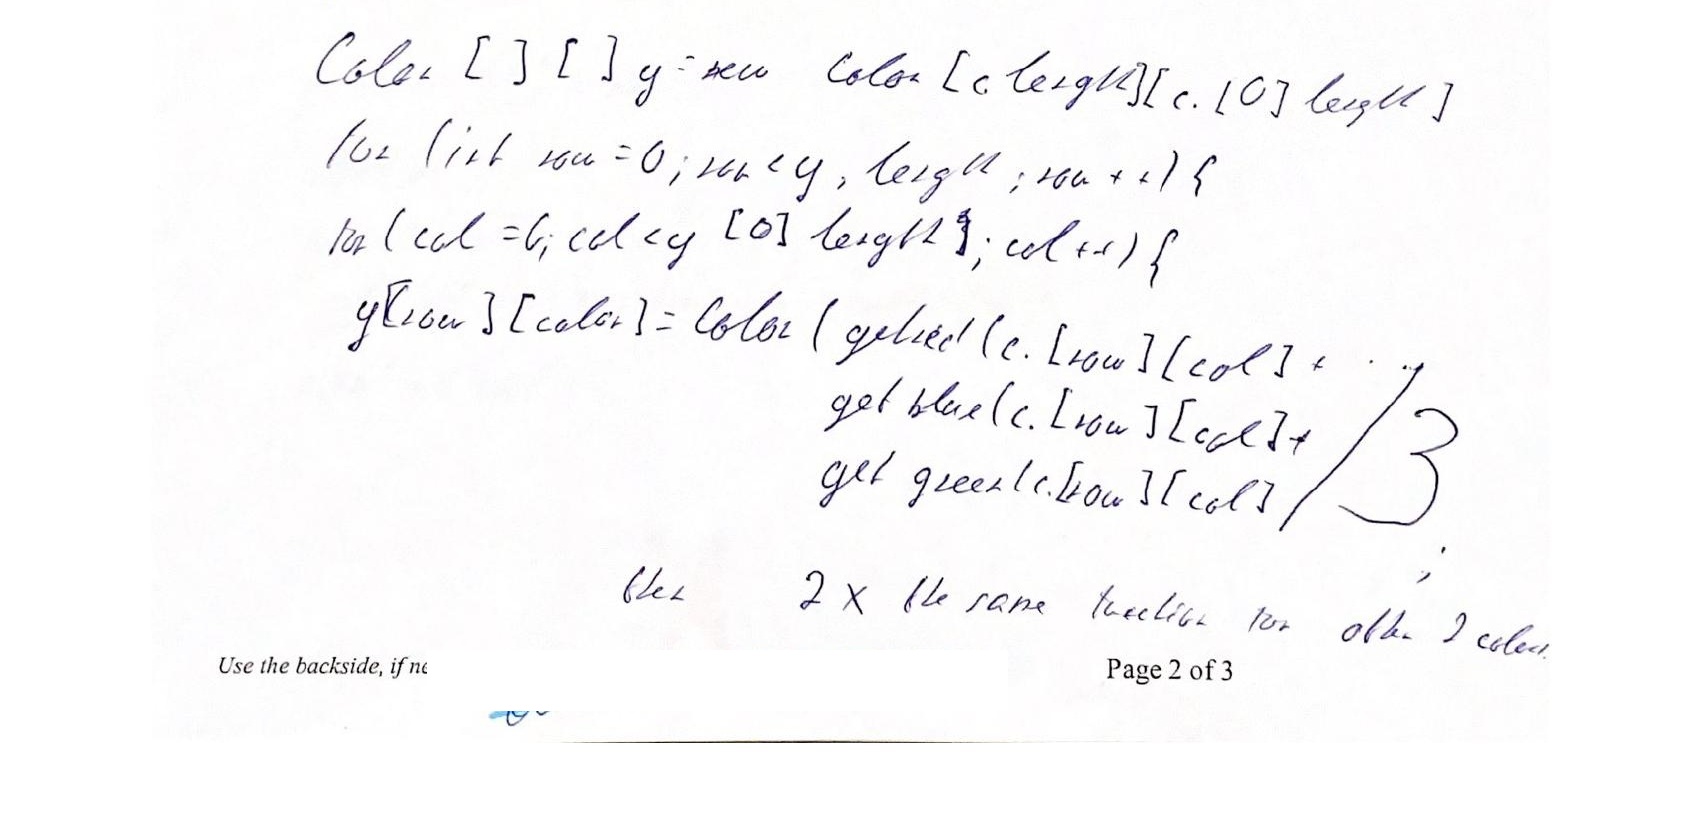 Color [ ] [ ] y = new Color [c length][c. [0] length]
for (int row = 0; row < y, length; row ++) {
for (col = 0; col < y [0] length]; col ++) {
y[row][color] = Color (getred (c. [row][col] +
get blue (c. [row][col] +
get green (c. [row][col] / 3
;
then 2 x the same function for other 2 colors.
Use the backside, if ne
Page 2 of 3